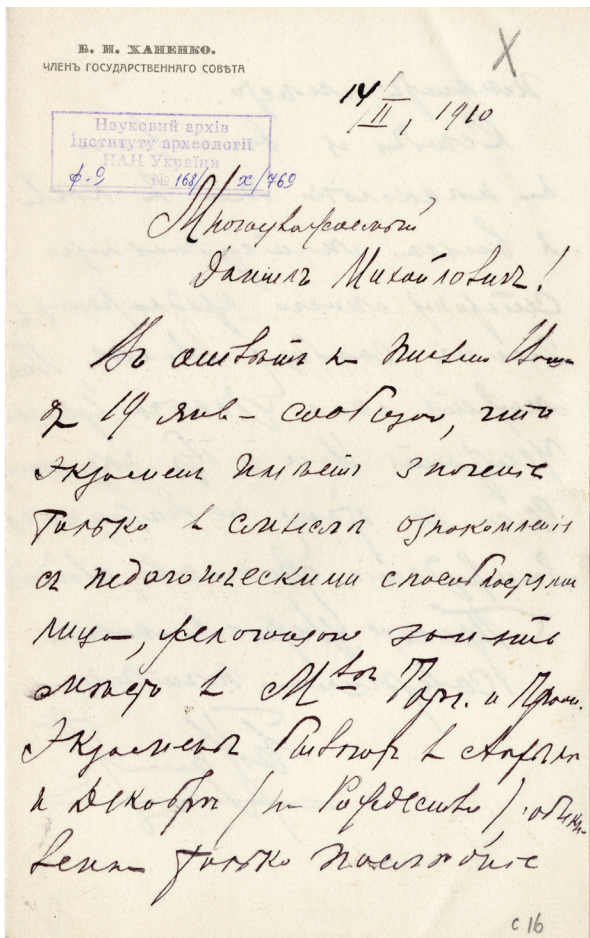 Б. И. ХАНЕНКО.
ЧЛЕНЪ ГОСУДАРСТВЕННАГО СОВѢТА
14/II, 1910
Науковий архів
Інституту археології
НАН України
ф. 9 № 168/ х/769
Многоуважаемый
Даніилъ Михайловичъ!
Въ отвѣтъ на письмо Ваше
отъ 19 янв – сообщаю, что
экзаменъ имѣетъ значеніе
только въ смыслѣ ознакомленія
съ педагогическими способностями
лица, желающаго занять
мѣсто въ М-вѣ Торг. и Пром.
Экзамены бываютъ въ Апрѣлѣ
и Декабрѣ / на Рождество /, обыкно-
венно только послѣдніе
с 16